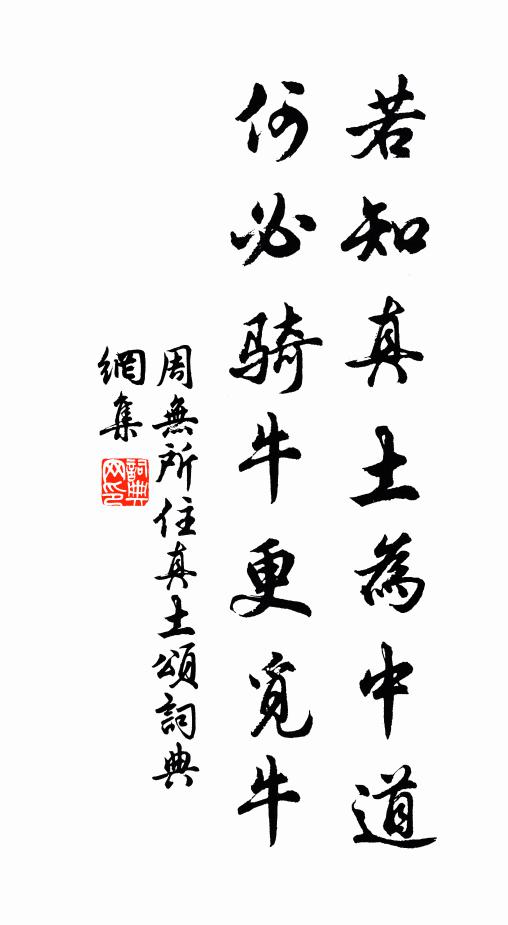 若知真土為中道
何必騎牛更覓牛
周無所住真土頌詞典
網集
詞典
网印